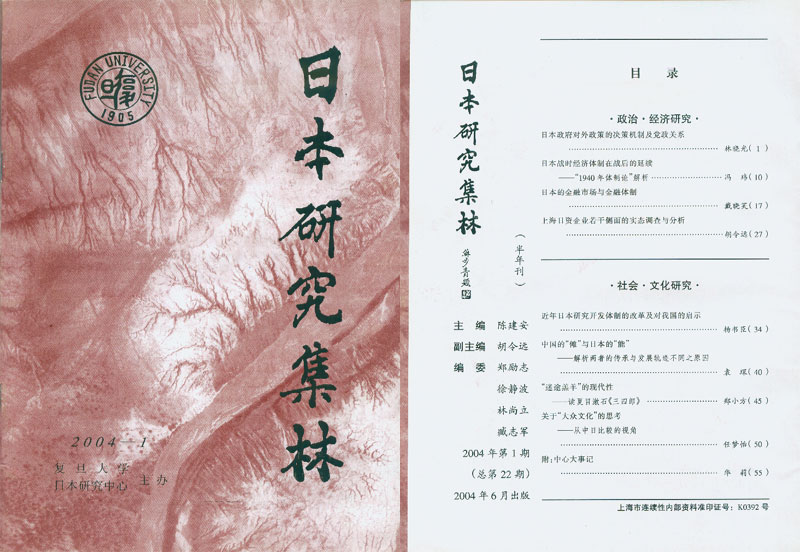 FUDAN UNIVERSITY
1905
日本研究集林
2004—1
复旦大学
日本研究中心
主办
日本研究集林
(半年刊)
主编 陈建安
副主编 胡令远
编委 郑励志
徐静波
林尚立
臧志军
2004年第1期
(总第22期)
2004年6月出版
目 录
·政治·经济研究·
日本政府对外政策的决策机制及党政关系
林晓光(1)
日本战时经济体制在战后的延续
——“1940年体制论”解析 冯 玮(10)
日本的金融市场与金融体制
戴晓芙(17)
上海日资企业若干侧面的实态调查与分析
胡令远(27)
·社会·文化研究·
近年日本研究开发体制的改革及对我国的启示
杨书臣(34)
中国的“傩”与日本的“能”
——解析两者的传承与发展轨迹不同之原因
袁 琛(40)
“迷途羔羊”的现代性
——读夏目漱石《三四郎》 郑小方(45)
关于“大众文化”的思考
——从中日比较的视角
任梦怡(50)
附:中心大事记
华 莉(55)
上海市连续性内部资料准印证号: K0392 号